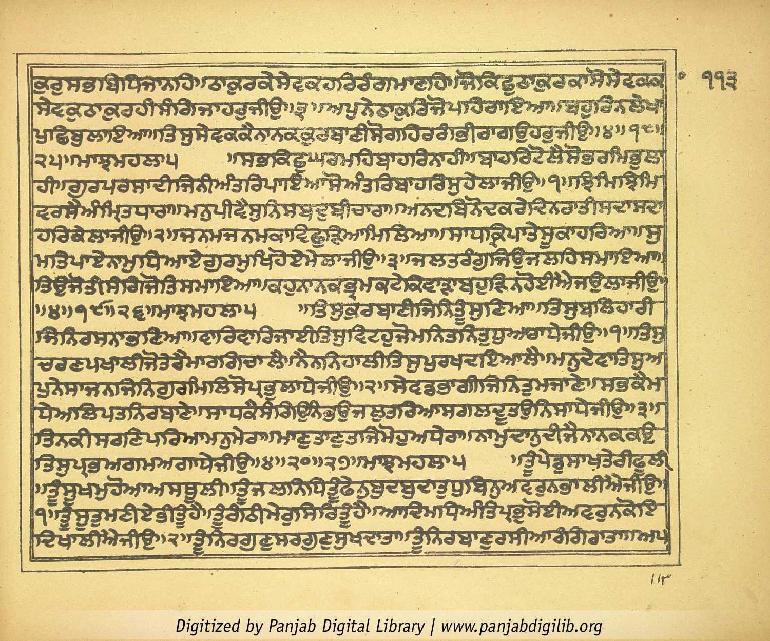 ਕੁਰੁਸਭਾਬਿਧਿਜਾਨਹਿ॥ਠਾਕੁਰਕੇਸੇਵਕਹਰਿਰੰਗਮਾਣਹਿ॥ਜੋਕਿਛੁਠਾਕੁਰਕਾਸੋਸੇਵਕਕਾ ੧੧੩
ਸੇਵਕੁਠਾਕੁਰਹੀਸੰਗਿਜਾਹਰੁਜੀਉ॥੩॥ਅਪੁਨੈਠਾਕੁਰਿਜੋਪਹਿਰਾਇਆ॥ਬਹੁਰਿਨਲੇਖਾ
ਪੁਛਿਬੁਲਾਇਆ॥ਤਿਸੁਸੇਵਕਕੈਨਾਨਕਕੁਰਬਾਣੀਸੋਗਹਿਰਗਭੀਰਾਗਉਹਰੁਜੀਉ॥੪॥੧੮॥
੨੫॥ਮਾਝਮਹਲਾ੫ ॥ਸਭਕਿਛੁਘਰਮਹਿਬਾਹਰਿਨਾਹੀ॥ਬਾਹਰਿਟੋਲੈਸੋਭਰਮਿਭੁਲਾ
ਹੀ॥ਗੁਰਪਰਸਾਦੀਜਿਨੀਅੰਤਰਿਪਾਇਆਸੋਅੰਤਰਿਬਾਹਰਿਸੁਹੇਲਾਜੀਉ॥੧॥ਝਿਮਿਝਿਮਿ
ਵਰਸੈਅੰਮ੍ਰਿਤਧਾਰਾ॥ਮਨੁਪੀਵੈਸੁਨਿਸਬਦੁਬੀਚਾਰਾ॥ਅਨਦਬਿਨੋਦਕਰੇਦਿਨਰਾਤੀਸਦਾਸਦਾ
ਹਰਿਕੇਲਾਜੀਉ॥੨॥ਜਨਮਜਨਮਕਾਵਿਛੁੜਿਆਮਿਲਿਆ॥ਸਾਧਕ੍ਰਿਪਾਤੇਸੂਕਾਹਰਿਆ॥ਸੁ
ਮਤਿਪਾਏਨਾਮੁਧਿਆਏਗੁਰਮੁਖਿਹੋਏਮੇਲਾਜੀਉ॥੩॥ਜਲਤਰੰਗੁਜਿਉਜਲਹਿਸਮਾਇਆ॥
ਤਿਉਜੋਤੀਸੰਗਿਜੋਤਿਸਮਾਇਆ॥ਕਹੁਨਾਨਕਭ੍ਰਮਕਟੇਕਿਵਾੜਾਬਹੁੜਿਨਹੋਈਐਜਉਲਾਜੀਉ
॥੪॥੧੯॥੨੬॥ਮਾਝਮਹਲਾ੫ ॥ਤਿਸੁਕੁਰਬਾਣੀਜਿਨਿਤੂੰਸੁਣਿਆ॥ਤਿਸੁਬਲਿਹਾਰੀ
ਜਿਨਿਰਸਨਾਭਣਿਆ॥ਵਾਰਿਵਾਰਿਜਾਈਤਿਸੁਵਿਟਹੁਜੋਮਨਿਤਨਿਤੁਧੁਆਰਾਧੇਜੀਉ॥੧॥ਤਿਸੁ
ਚਰਣਪਖਾਲੀਜੋਤੇਰੈਮਾਰਗਿਚਾਲੈ॥ਨੈਨਨਿਹਾਲੀਤਿਸੁਪੁਰਖਦਇਆਲੈ॥ਮਨੁਦੇਵਾਤਿਸੁਅ
ਪੁਨੇਸਾਜਨਜਿਨਿਗੁਰਮਿਲਿਸੋਪ੍ਰਭੁਲਾਧੇਜੀਉ॥੨॥ਸੇਵਡਭਾਗੀਜਿਨਿਤੁਮਜਾਣੇ॥ਸਭਕੈਮ
ਧੇਅਲਿਪਤਨਿਰਬਾਣੇ॥ਸਾਧਕੈਸੰਗਿਉਨਿਭਉਜਲੁਤਰਿਆਸਗਲਦੂਤਉਨਿਸਾਧੇਜੀਉ॥੩॥
ਤਿਨਕੀਸਰਣਿਪਰਿਆਮਨੁਮੇਰਾ॥ਮਾਣੁਤਾਣੁਤਜਿਮੋਹੁਅੰਧੇਰਾ॥ਨਾਮੁਦਾਨੁਦੀਜੈਨਾਨਕਕਉ
ਤਿਸੁਪ੍ਰਭਅਗਮਅਗਾਧੇਜੀਉ॥੪॥੨੦॥੨੭॥ਮਾਝਮਹਲਾ੫ ॥ਤੂੰਪੇਡੁਸਾਖਤੇਰੀਫੂਲੀ
॥ਤੂੰਸੂਖਮੁਹੋਆਅਸਥੂਲੀ॥ਤੂੰਜਲਨਿਧਿਤੂੰਫੇਨੁਬੁਦਬੁਦਾਤੁਧੁਬਿਨੁਅਵਰੁਨਭਾਲੀਐਜੀਉ॥
੧॥ਤੂੰਸੂਤੁਮਣੀਏਭੀਤੂੰਹੈ॥ਤੂੰਗੰਠੀਮੇਰੁਸਿਰਿਤੂੰਹੈ॥ਆਦਿਮਧਿਅੰਤਿਪ੍ਰਭੁਸੋਈਅਵਰੁਨਕੋਇ
ਦਿਖਾਲੀਐਜੀਉ॥੨॥ਤੂੰਨਿਰਗੁਣੁਸਰਗੁਣੁਸੁਖਦਾਤਾ॥ਤੂੰਨਿਰਬਾਣੁਰਸੀਆਰੰਗਿਰਾਤਾ॥ਅਪ
Digitized by Panjab Digital Library | www.panjabdigilib.org